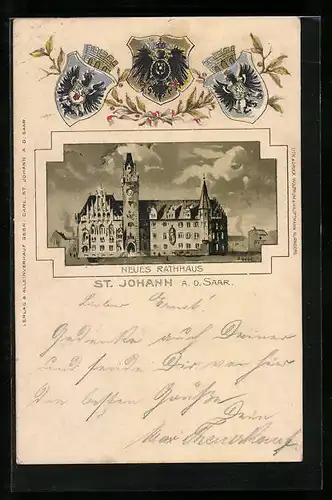 NEUES RATHHAUS
ST. JOHANN A. D. SAAR.
Lieber Ernst!
Gedenke auch Deiner
und sende Dir von hier
die besten Grüße
Dein
Max
VERLAG & ALLEINVERKAUF GEBR. CARL, ST. JOHANN A. D. SAAR